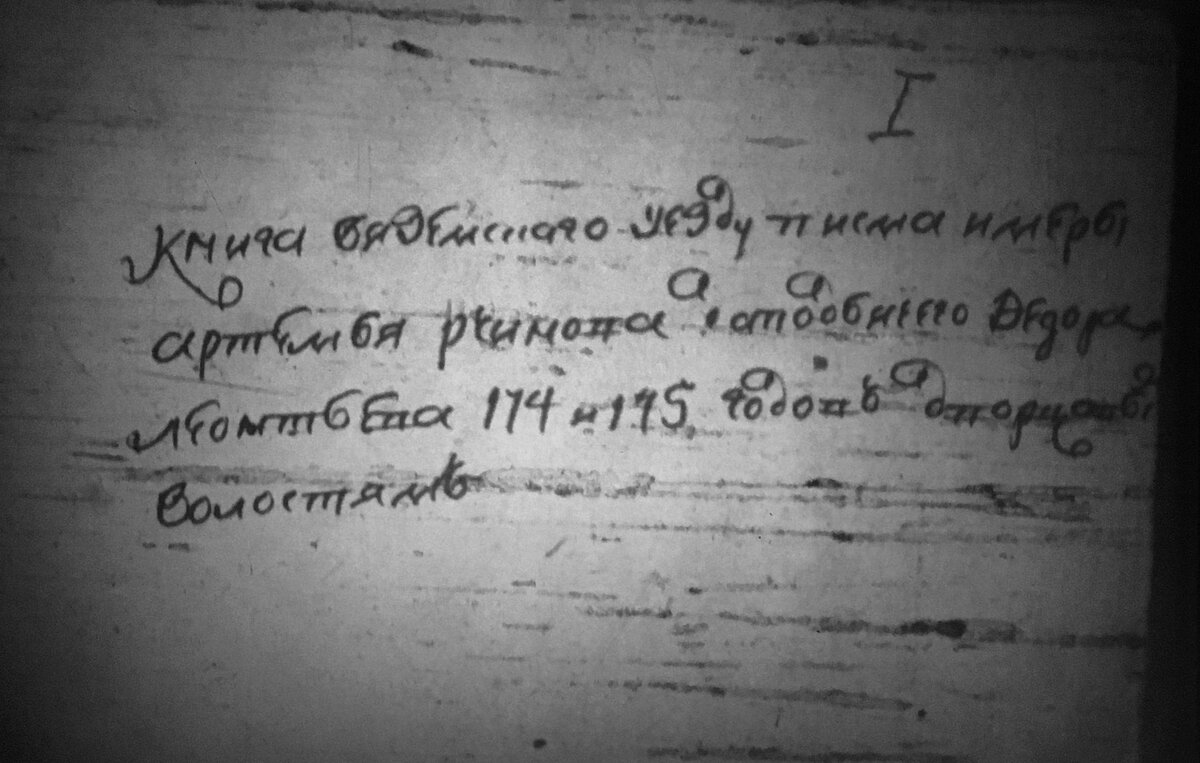 I
Книга вяземского уезду писма имеры
артемья рчинова подьячего Федора
леонтьева 174 и 175 годовъ дворцовы
волостямъ